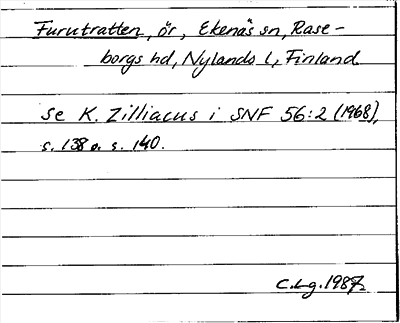 Furutratten, ör, Ekenäs sn, Rase-
borgs hd, Nylands l, Finland
se K. Zilliacus i SNF 56:2 (1968),
s. 138 o. s. 140.
C.Lg. 1987